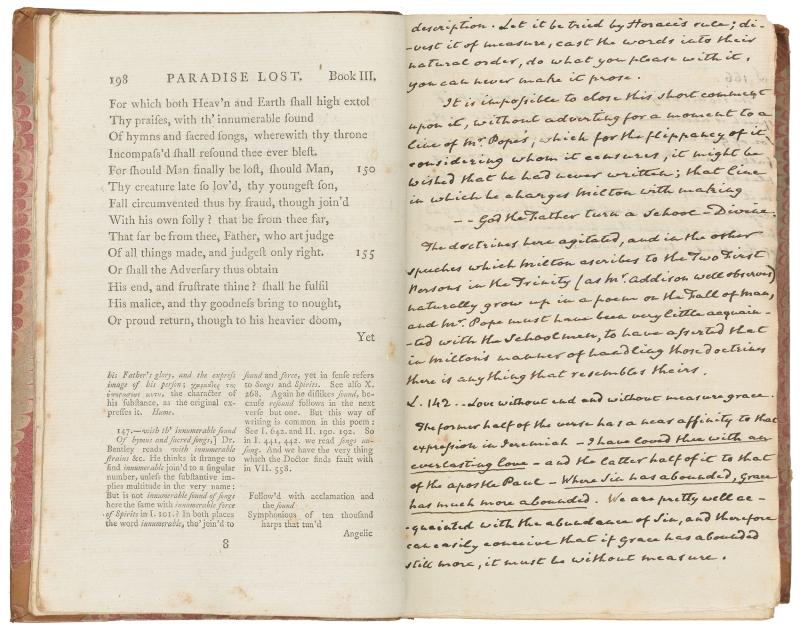 198 PARADISE LOST. Book III.
For which both Heav'n and Earth ſhall high extol
Thy praiſes, with th' innumerable ſound
Of hymns and ſacred ſongs, wherewith thy throne
Incompaſs'd ſhall reſound thee ever bleſt.
For ſhould Man finally be loſt, ſhould Man, 150
Thy creature late ſo lov'd, thy youngeſt ſon,
Fall circumvented thus by fraud, though join'd
With his own folly? that be from thee far,
That far be from thee, Father, who art judge
Of all things made, and judgeſt only right. 155
Or ſhall the Adverſary thus obtain
His end, and fruſtrate thine? ſhall he fulfil
His malice, and thy goodneſs bring to nought,
Or proud return, though to his heavier doom,
Yet
his Father's glory, and the expreſs
image of his perſon;
the character of
his ſubſtance, as the original ex-
preſſes it. Hume.
147.—with th' innumerable ſound
Of hymns and ſacred ſongs,] Dr.
Bentley reads with innumerable
ſtrains &c. He thinks it ſtrange to
find innumerable join'd to a ſingular
number, unleſs the ſubſtantive im-
plies multitude in the very name:
But is not innumerable ſound of ſongs
here the ſame with innumerable force
of Spirits in I. 101.? In both places
the word innumerable, tho' join'd to
ſound and force, yet in ſenſe refers
to Songs and Spirits. See alſo X.
268. Again he diſlikes ſound, be-
cauſe reſound follows in the next
verſe but one. But this way of
writing is common in this poem:
See I. 642. and II. 190. 192. So
in I. 441, 442. we read ſongs un-
ſung. And we have the very thing
which the Doctor finds fault with
in VII. 558.
Follow'd with acclamation and
the ſound
Symphonious of ten thouſand
harps that tun'd
Angelic
8
deſcription. Let it be tried by Horace's rule; di-
-vest it of measure, cast the words into their
natural order, do what you please with it,
you can never make it prose.
It is impoſsible to close this short comment
upon it, without adverting for a moment to a
line of Mr. Pope's, which for the flippancy of it,
considering whom it censures, it might be
wished that he had never written; that line
in which he charges Milton with making
-- God the Father turn a School-Divine.
The doctrines here agitated, and in the other
speeches which Milton ascribes to the Two First
Persons in the Trinity (as Mr. Addison well observes)
naturally grow up in a poem on the Fall of Man,
and Mr. Pope must have been very little acquain-
-ted with the Schoolmen, to have aſserted that
in Milton's manner of handling those doctrines
there is any thing that resembles theirs.
L. 142. - Love without end and without measure grace.
The former half of the verse has a near affinity to that
expreſsion in Jeremiah - I have loved thee with an
everlasting love - and the latter half of it to that
of the apostle Paul - Where Sin has abounded, Grace
has much more abounded. We are pretty well ac-
-quainted with the abundance of Sin, and therefore
can easily conceive that if Grace has abounded
still more, it must be without measure.